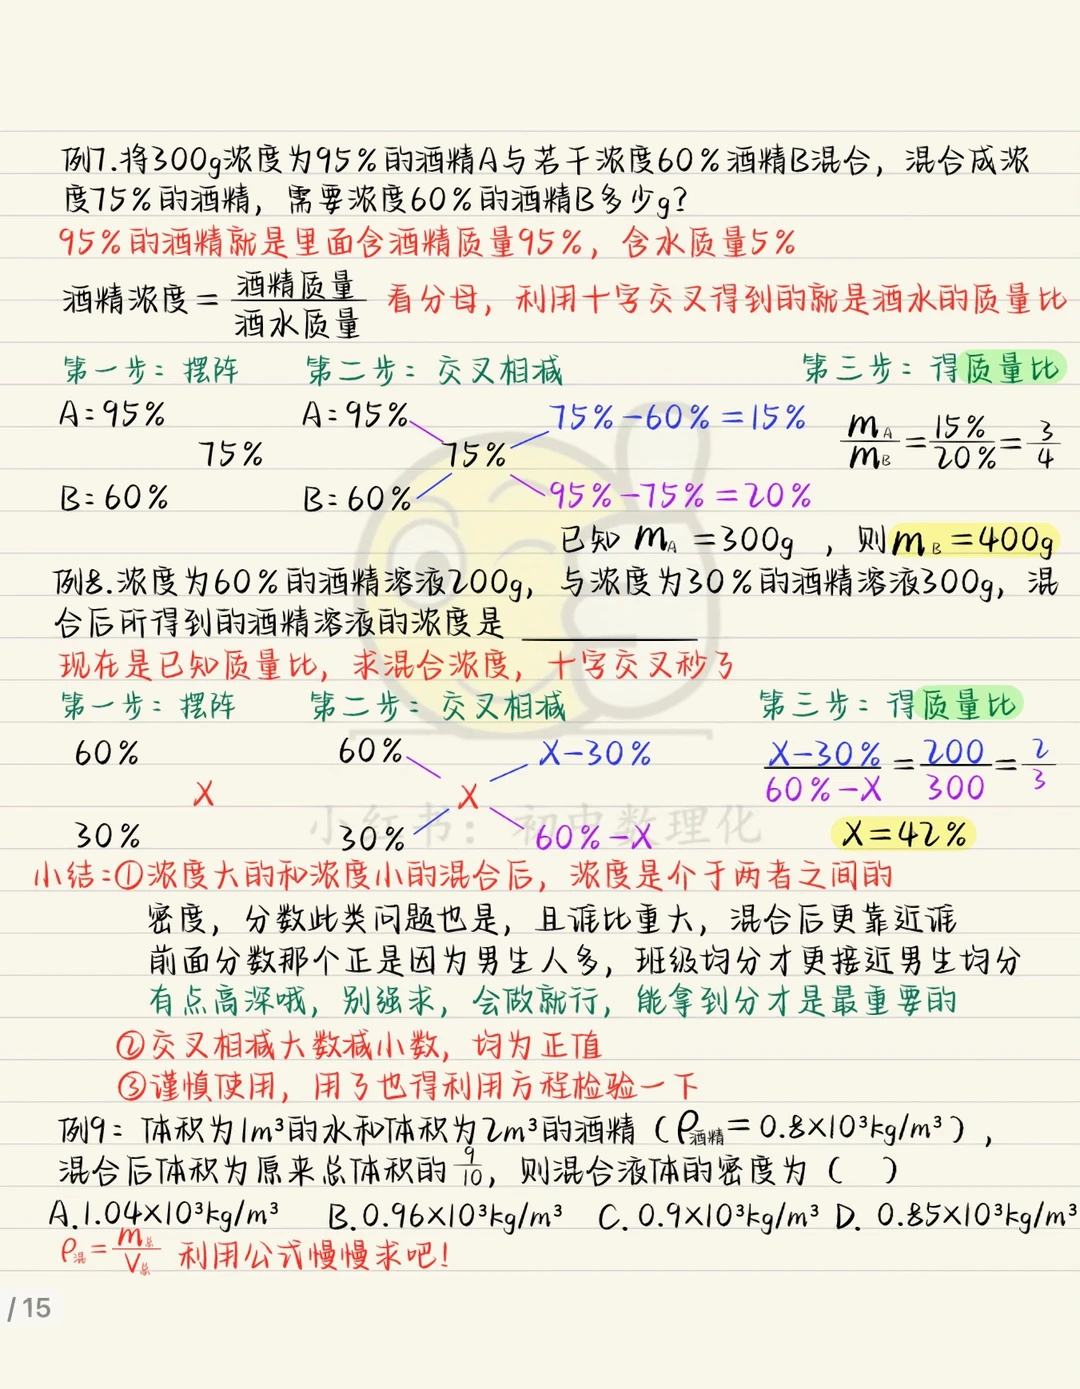 例7.将300g浓度为95%的酒精A与若干浓度60%酒精B混合，混合成浓
度75%的酒精，需要浓度60%的酒精B多少g？
95%的酒精就是里面含酒精质量95%，含水质量5%
酒精浓度=酒精质量/酒水质量 看分母，利用十字交叉得到的就是酒水的质量比
第一步：摆阵 第二步：交叉相减 第三步：得质量比
A:95% A:95% 75%-60%=15% mA/mB=15%/20%=3/4
75% 75%
B:60% B:60% 95%-75%=20%
已知 mA=300g ，则mB=400g
例8.浓度为60%的酒精溶液200g，与浓度为30%的酒精溶液300g，混
合后所得到的酒精溶液的浓度是 ________
现在是已知质量比，求混合浓度，十字交叉秒了
第一步：摆阵 第二步：交叉相减 第三步：得质量比
60% 60% X-30% X-30%/60%-X=200/300=2/3
X X
30% 30% 60%-X X=42%
小红书：初中数理化
小结:①浓度大的和浓度小的混合后，浓度是介于两者之间的
密度，分数此类问题也是，且谁比重大，混合后更靠近谁
前面分数那个正是因为男生人多，班级均分才更接近男生均分
有点高深哦，别强求，会做就行，能拿到分才是最重要的
②交叉相减大数减小数，均为正值
③谨慎使用，用了也得利用方程检验一下
例9：体积为1m³的水和体积为2m³的酒精（ρ酒精=0.8×10³kg/m³），
混合后体积为原来总体积的9/10，则混合液体的密度为（ ）
A.1.04×10³kg/m³ B.0.96×10³kg/m³ C.0.9×10³kg/m³ D.0.85×10³kg/m³
ρ混=m总/V总 利用公式慢慢求吧！
/15